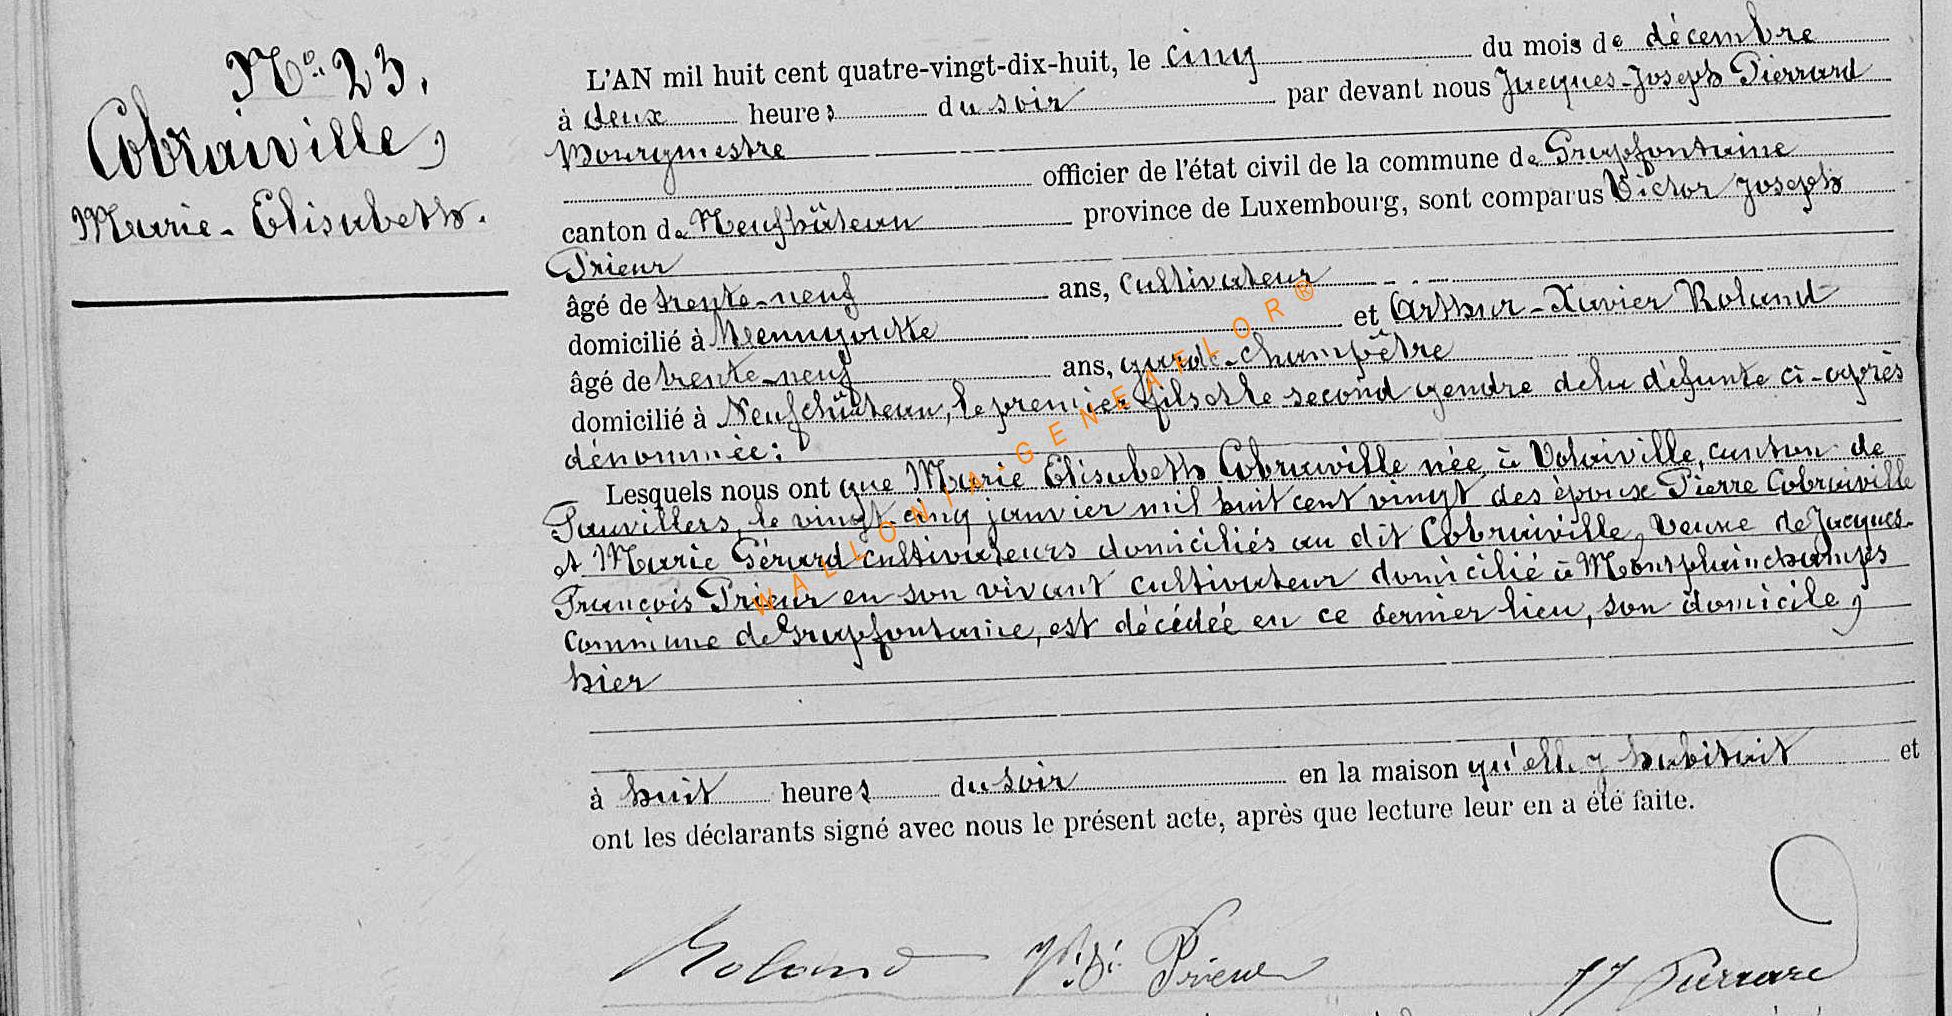 N° 23.
Cobraiville,
Marie-Elisabeth.
L'AN mil huit cent quatre-vingt-dix-huit, le cinq du mois de décembre
à deux heures du soir par devant nous Jacques-Joseph Pierrard
Bourgmestre
officier de l'état civil de la commune de Grapfontaine
canton de Neufchâteau province de Luxembourg, sont comparus Victor Joseph
Prieur
âgé de trente-neuf ans, cultivateur
domicilié à et Arthur-Xavier Roland
âgé de trente-neuf ans, garde-champêtre
domicilié à Neufchâteau, le premier fils et le second gendre de la défunte ci-après
dénommée:
Lesquels nous ont que Marie Elisabeth Cobraiville née à Volaiville, canton de
Fauvillers, le vingt-cinq janvier mil huit cent vingt des époux Pierre Cobraiville
et Marie Gérard cultivateurs domiciliés au dit Cobraiville, veuve de Jacques-
François Prieur en son vivant cultivateur domicilié à Montplainchamps
commune de Grapfontaine, est décédée en ce dernier lieu, son domicile,
hier
à huit heures du soir en la maison qu'elle y habitait et
ont les déclarants signé avec nous le présent acte, après que lecture leur en a été faite.
Roland Prieur JJ Pierrard
WALLONIA GENEAFLOR®